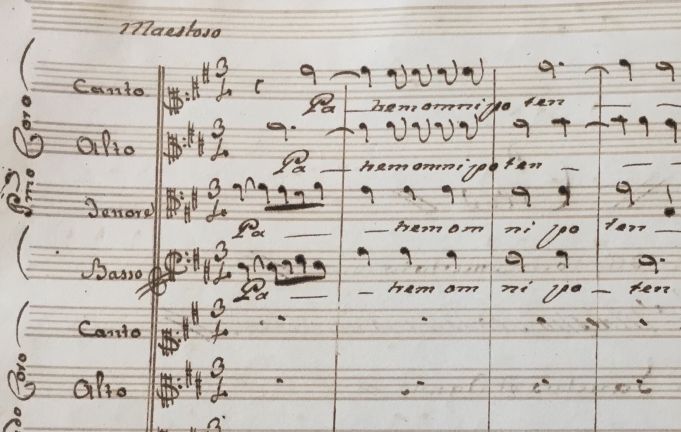 Maestoso
Canto
Pa - trem omni po ten
Alto
Pa - trem omni po ten -
Tenore
Pa - - trem om ni po ten -
Basso
Pa - - trem om ni po - ten
Pmo Coro
Canto
Alto
do Coro